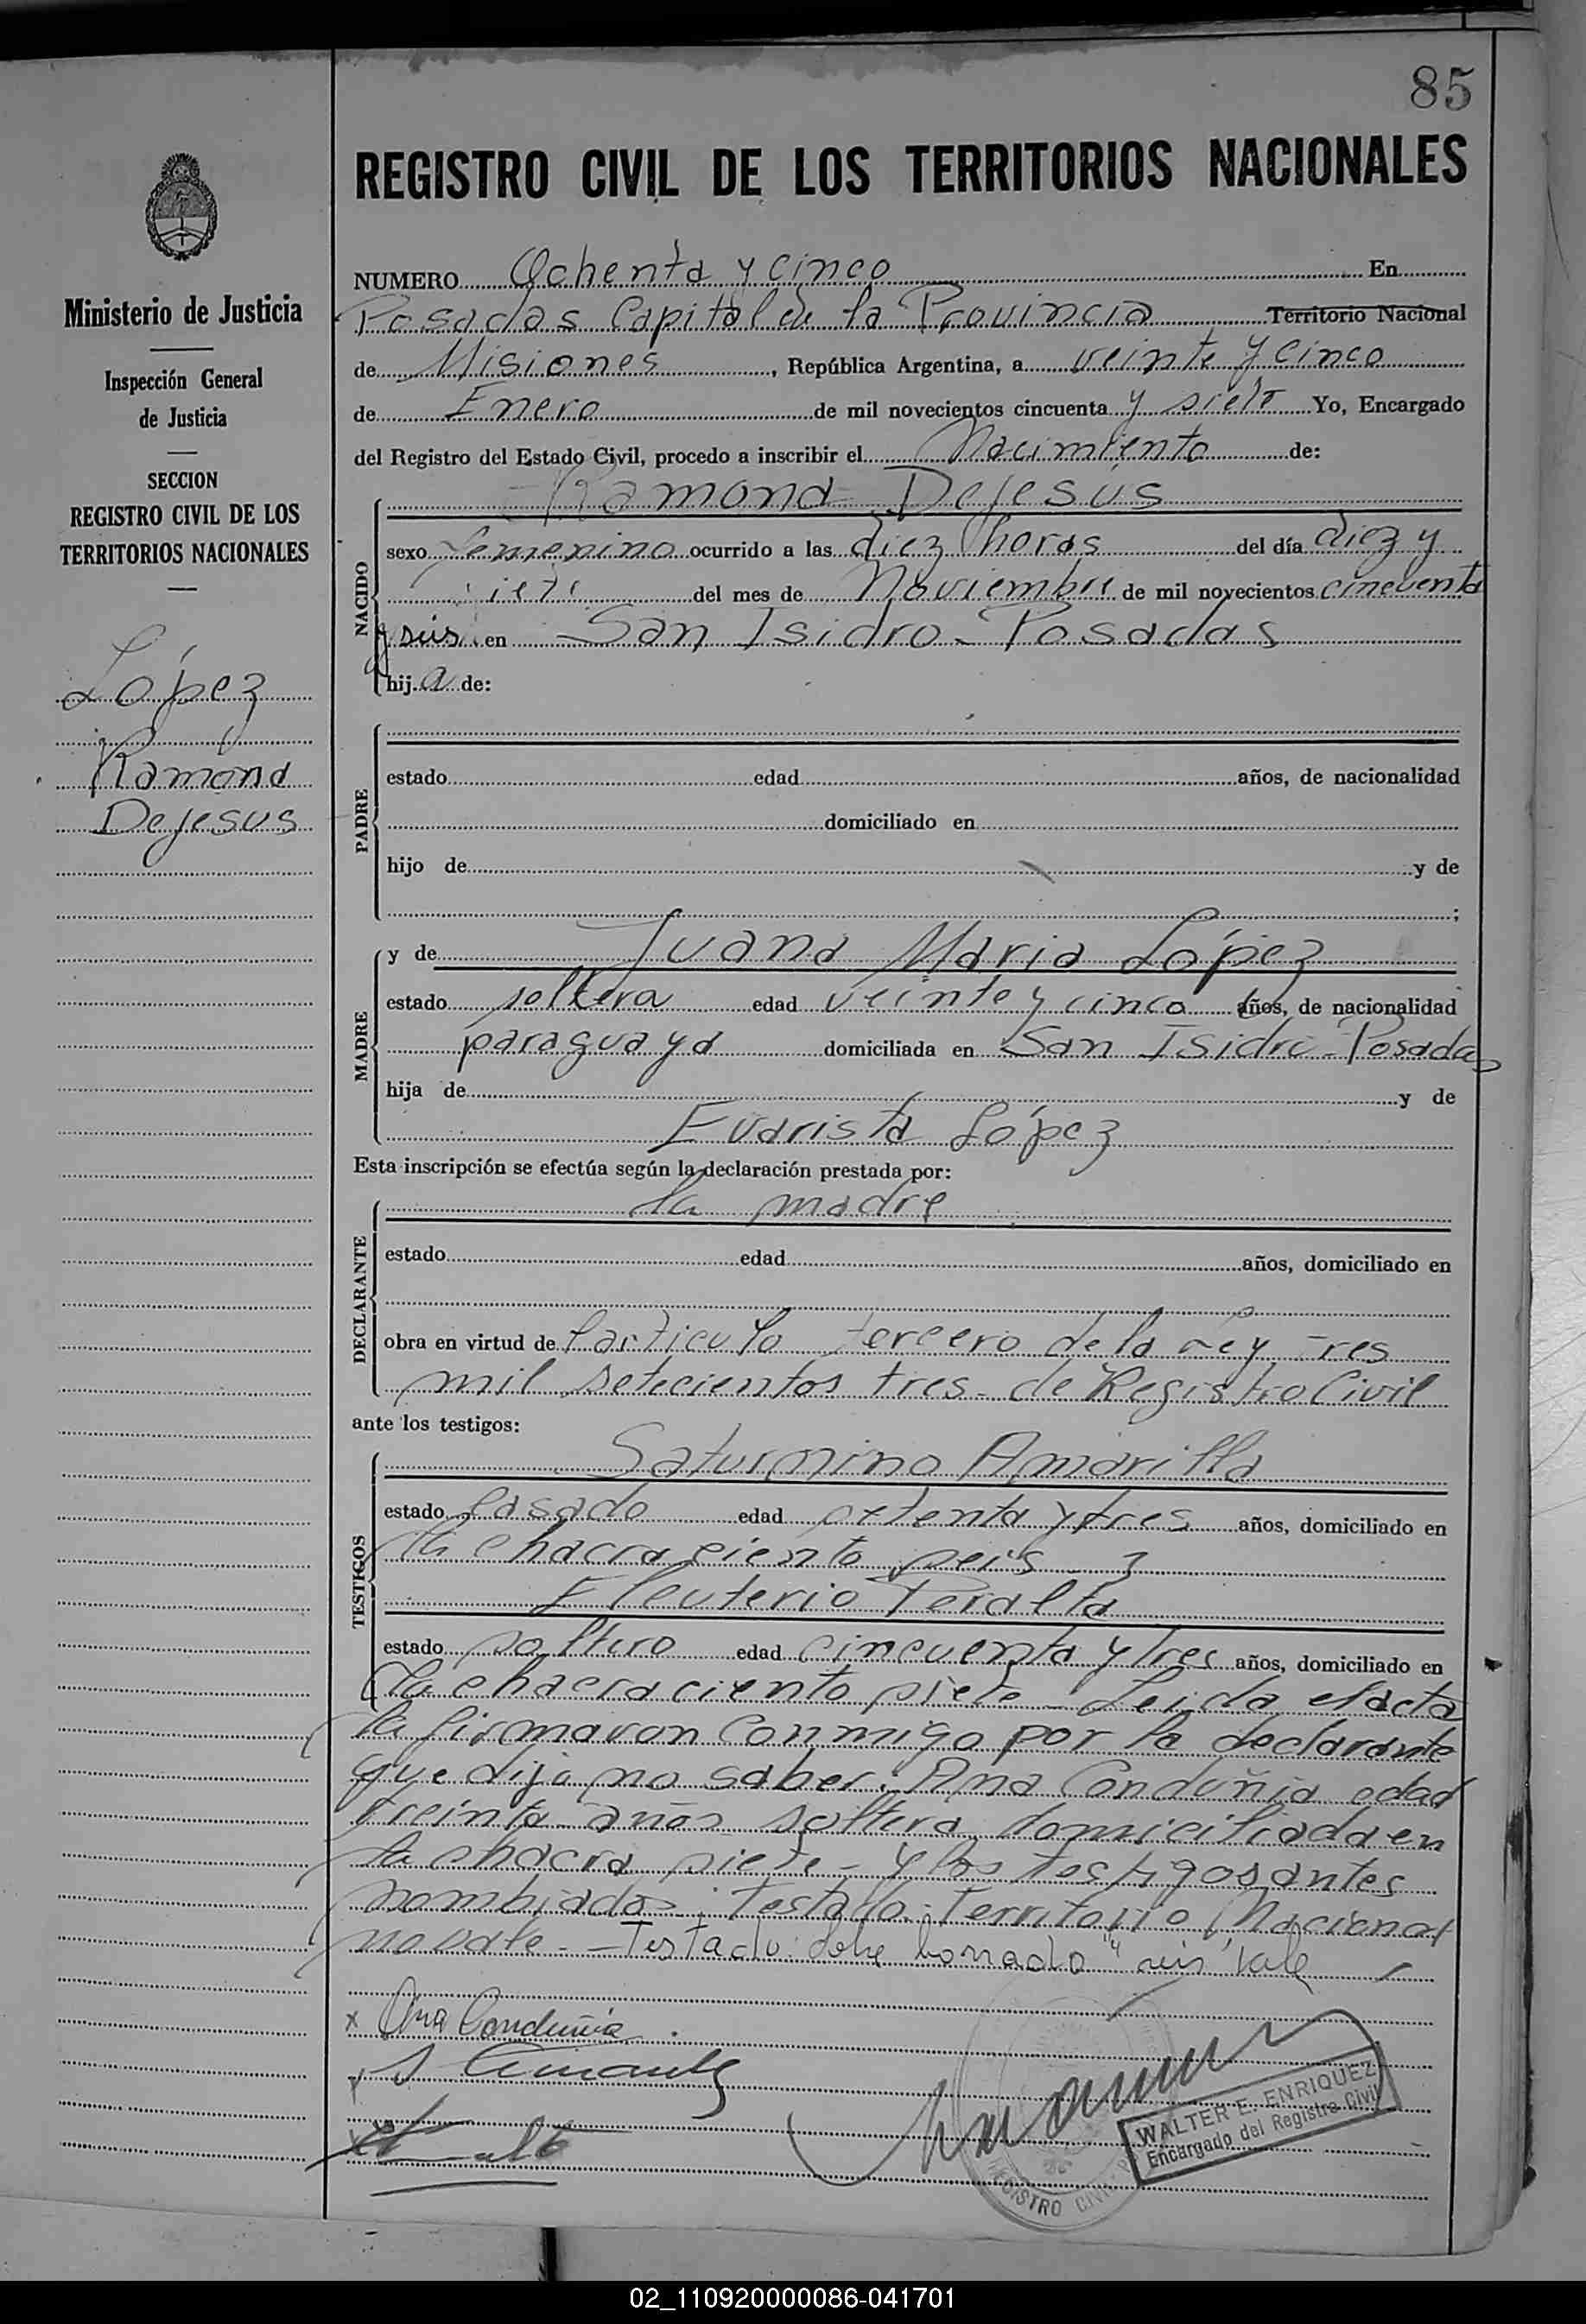 85
REGISTRO CIVIL DE LOS TERRITORIOS NACIONALES
Ministerio de Justicia
Inspección General
de Justicia
SECCION
REGISTRO CIVIL DE LOS
TERRITORIOS NACIONALES
López
Ramona
De Jesus
NUMERO Ochenta y cinco En
Posadas Capital de la Provincia Territorio Nacional
de Misiones, República Argentina, a veinte y cinco
de Enero de mil novecientos cincuenta y siete Yo, Encargado
del Registro del Estado Civil, procedo a inscribir el Nacimiento de:
Ramona De Jesús
NACIDO
sexo femenino ocurrido a las diez horas del día diez y
siete del mes de Noviembre de mil novecientos cincuenta
y seis en San Isidro - Posadas
hija de:
PADRE
estado edad años, de nacionalidad
domiciliado en
hijo de y de
;
MADRE
y de Juana Maria López
estado soltera edad veinte y cinco años, de nacionalidad
paraguaya domiciliada en San Isidro - Posadas
hija de y de
Evarista López
Esta inscripción se efectúa según la declaración prestada por:
DECLARANTE
la madre
estado edad años, domiciliado en
obra en virtud de l'articulo tercero de la Ley Tres
mil setecientos tres - de Registro Civil
ante los testigos:
TESTIGOS
Saturnino Amarilla
estado casado edad setenta y tres años, domiciliado en
la chacra ciento seis - y
Eleuterio Peralta
estado soltero edad cincuenta y tres años, domiciliado en
la chacra ciento siete - Leida el acta
la firmaron conmigo por la declarante
que dijo no saber: Ana Conduñia edad
treinta años soltera domiciliada en
la chacra siete - y los testigos antes
nombrados. Testado: Territorio Nacional
no vale. - Testado sobre borrado "seis" Vale
Ana Conduñia
WALTER E. ENRIQUEZ
Encargado del Registro Civil
REGISTRO CIVIL
02_110920000086-041701